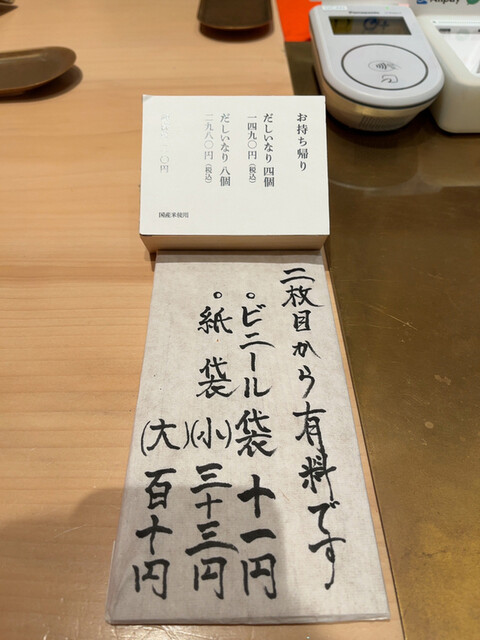 お持ち帰り
だしいなり 四個
一四九〇円(税込)
だしいなり 八個
二九八〇円(税込)
国産米使用
二枚目から有料です
。ビニール袋 十一円
。紙袋(小)三十三円
(大)百十円
Panasonic